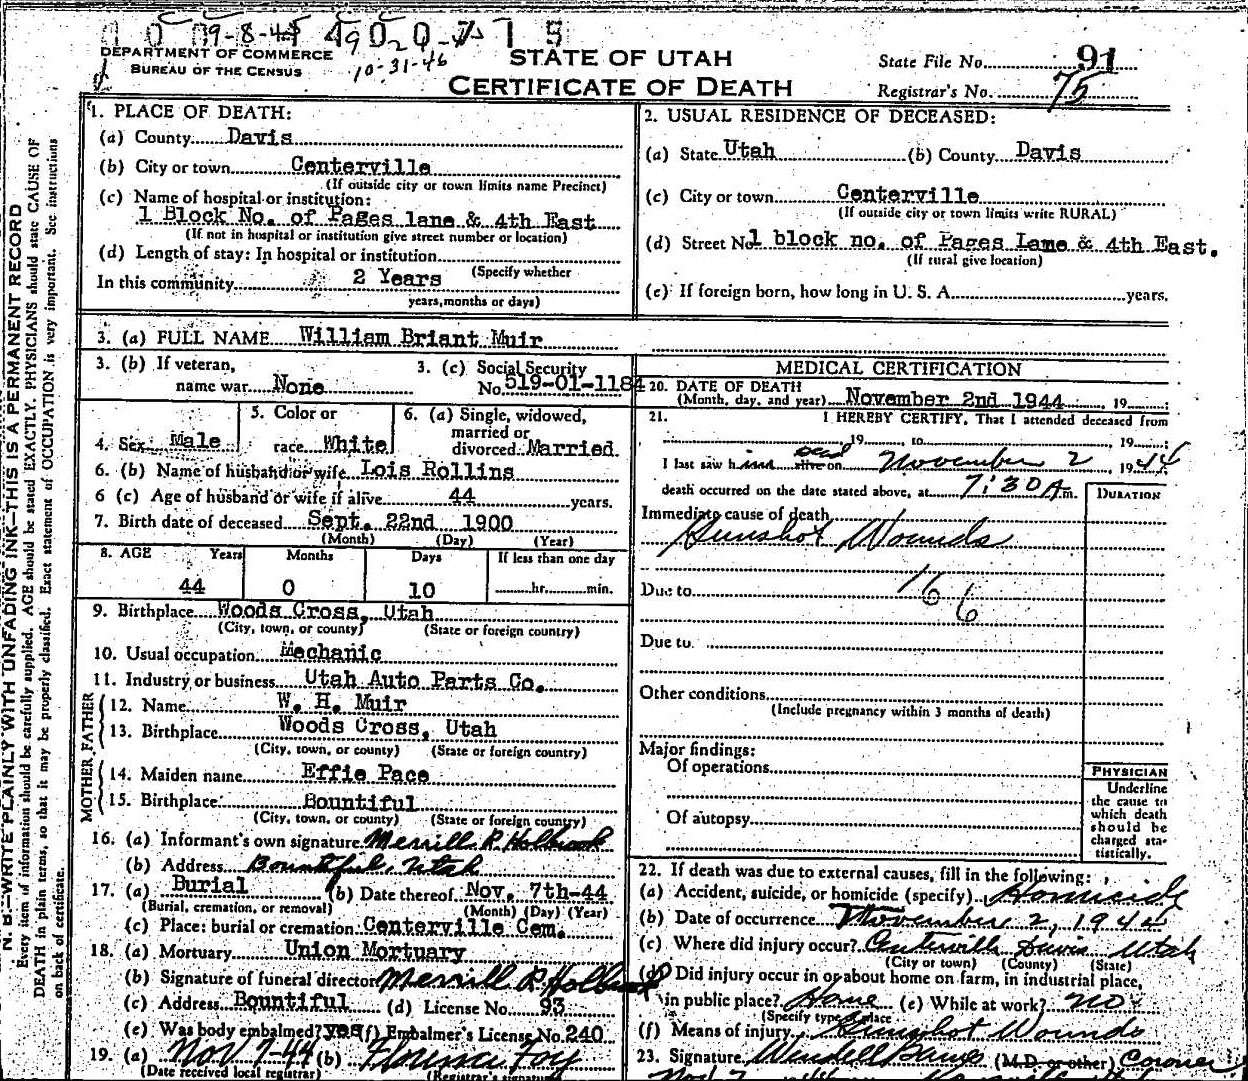 DEPARTMENT OF COMMERCE
BUREAU OF THE CENSUS
10-31-46
STATE OF UTAH
CERTIFICATE OF DEATH
State File No. 91
Registrar's No. 75
N. B.—WRITE PLAINLY WITH UNFADING INK—THIS IS A PERMANENT RECORD
Every item of information should be carefully supplied. AGE should be stated EXACTLY. PHYSICIANS should state CAUSE OF
DEATH in plain terms, so that it may be properly classified. Exact statement of OCCUPATION is very important. See instructions
on back of certificate.
1. PLACE OF DEATH:
(a) County Davis
(b) City or town Centerville
(If outside city or town limits name Precinct)
(c) Name of hospital or institution:
1 Block No. of Pages lane & 4th East
(If not in hospital or institution give street number or location)
(d) Length of stay: In hospital or institution
(Specify whether
In this community 2 Years
years, months or days)
2. USUAL RESIDENCE OF DECEASED:
(a) State Utah (b) County Davis
(c) City or town Centerville
(If outside city or town limits write RURAL)
(d) Street No. 1 block no. of Pages Lane & 4th East.
(If rural give location)
(e) If foreign born, how long in U. S. A. years.
3. (a) FULL NAME William Briant Muir
3. (b) If veteran,
name war None
3. (c) Social Security
No. 519-01-1184
4. Sex Male
5. Color or
race White
6. (a) Single, widowed,
married or
divorced Married
6. (b) Name of husband or wife Lois Rollins
6 (c) Age of husband or wife if alive 44 years.
7. Birth date of deceased Sept. 22nd 1900
(Month) (Day) (Year)
8. AGE Years Months Days If less than one day
44 0 10 hr. min.
9. Birthplace Woods Cross, Utah
(City, town, or county) (State or foreign country)
10. Usual occupation Mechanic
11. Industry or business Utah Auto Parts Co.
FATHER
12. Name W. H. Muir
13. Birthplace Woods Cross, Utah
(City, town, or county) (State or foreign country)
MOTHER
14. Maiden name Effie Pace
15. Birthplace Bountiful
(City, town, or county) (State or foreign country)
16. (a) Informant's own signature Merrill R Holbrook
(b) Address Bountiful, Utah
17. (a) Burial (b) Date thereof Nov. 7th-44
(Burial, cremation, or removal) (Month) (Day) (Year)
(c) Place: burial or cremation Centerville Cem.
18. (a) Mortuary Union Mortuary
(b) Signature of funeral director Merrill R Holbrook
(c) Address Bountiful (d) License No. 93
(e) Was body embalmed? yes (f) Embalmer's License No. 240
19. (a) Nov 7-44 (b) Florence Foy
(Date received local registrar) (Registrar's signature
MEDICAL CERTIFICATION
20. DATE OF DEATH
(Month, day, and year) November 2nd 1944 19
21. I HEREBY CERTIFY, That I attended deceased from
19 to 19
I last saw him dead alive on November 2 1944
death occurred on the date stated above, at 7:30 A m.
DURATION
Immediate cause of death
Gunshot Wounds
Due to 166
Due to
Other conditions
(Include pregnancy within 3 months of death)
Major findings:
Of operations
Of autopsy
PHYSICIAN
Underline
the cause to
which death
should be
charged sta-
tistically.
22. If death was due to external causes, fill in the following:
(a) Accident, suicide, or homicide (specify) Homicide
(b) Date of occurrence November 2, 1944
(c) Where did injury occur? Centerville Davis Utah
(City or town) (County) (State)
(d) Did injury occur in or about home on farm, in industrial place,
in public place? Home (e) While at work? no
(Specify type of place
(f) Means of injury Gunshot Wounds
23. Signature Wendell (M.D. or other) Coroner